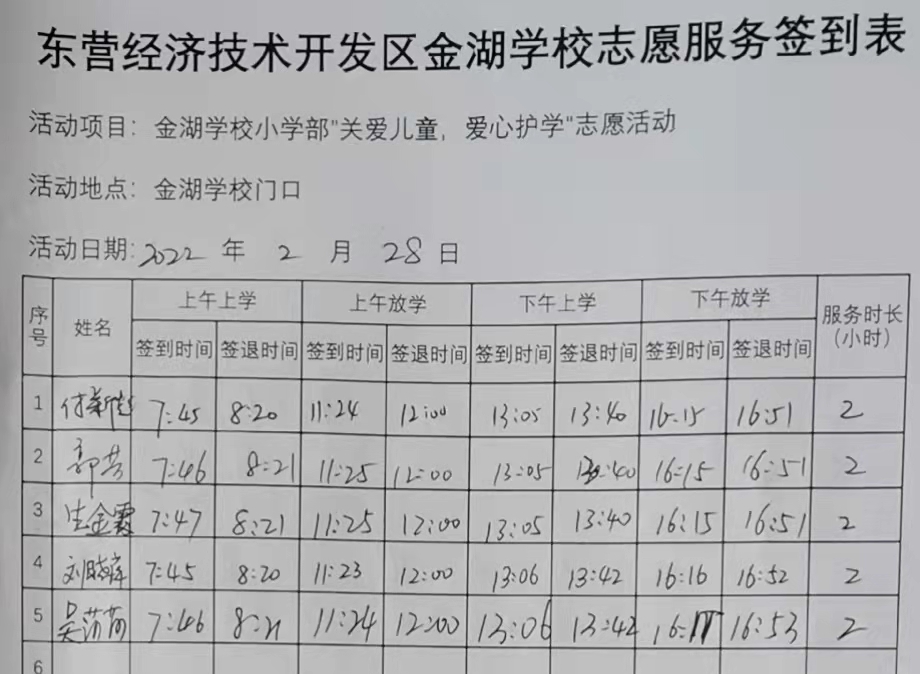 东营经济技术开发区金湖学校志愿服务签到表
活动项目：金湖学校小学部"关爱儿童，爱心护学"志愿活动
活动地点：金湖学校门口
活动日期：2022 年 2 月 28 日
序号 姓名 上午上学 上午放学 下午上学 下午放学 服务时长（小时）
签到时间 签退时间 签到时间 签退时间 签到时间 签退时间 签到时间 签退时间
1 7:45 8:20 11:24 12:00 13:05 13:40 16:15 16:51 2
2 郭芸 7:46 8:21 11:25 12:00 13:05 13:40 16:15 16:51 2
3 生金霞 7:47 8:21 11:25 12:00 13:05 13:40 16:15 16:51 2
4 刘晓萍 7:45 8:20 11:23 12:00 13:06 13:42 16:16 16:52 2
5 7:46 8:21 11:24 12:00 13:06 13:42 16:53 2
6